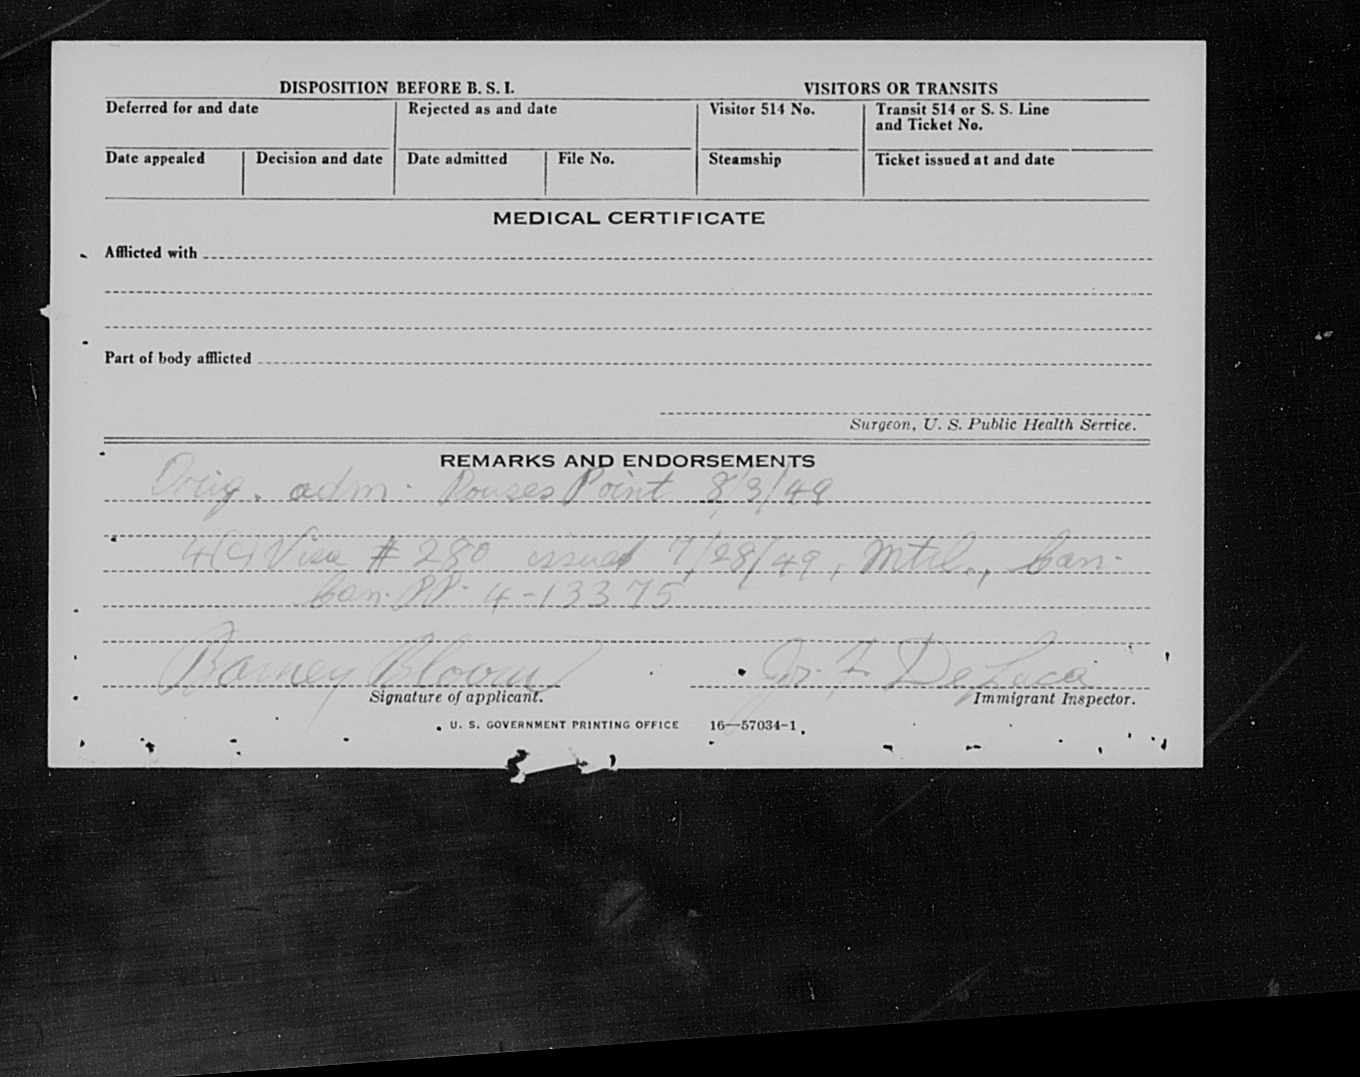 DISPOSITION BEFORE B. S. I.
VISITORS OR TRANSITS
Deferred for and date
Rejected as and date
Visitor 514 No.
Transit 514 or S. S. Line
and Ticket No.
Date appealed
Decision and date
Date admitted
File No.
Steamship
Ticket issued at and date
MEDICAL CERTIFICATE
Afflicted with
Part of body afflicted
Surgeon, U. S. Public Health Service.
REMARKS AND ENDORSEMENTS
Orig. adm. Rouses Point 8/3/49
4(C) Visa # 280 issued 7/28/49, Mtrl., Can.
Can. PP. 4-13375
Barney Bloom
DeLuca
Signature of applicant.
Immigrant Inspector.
U. S. GOVERNMENT PRINTING OFFICE 16—57034-1